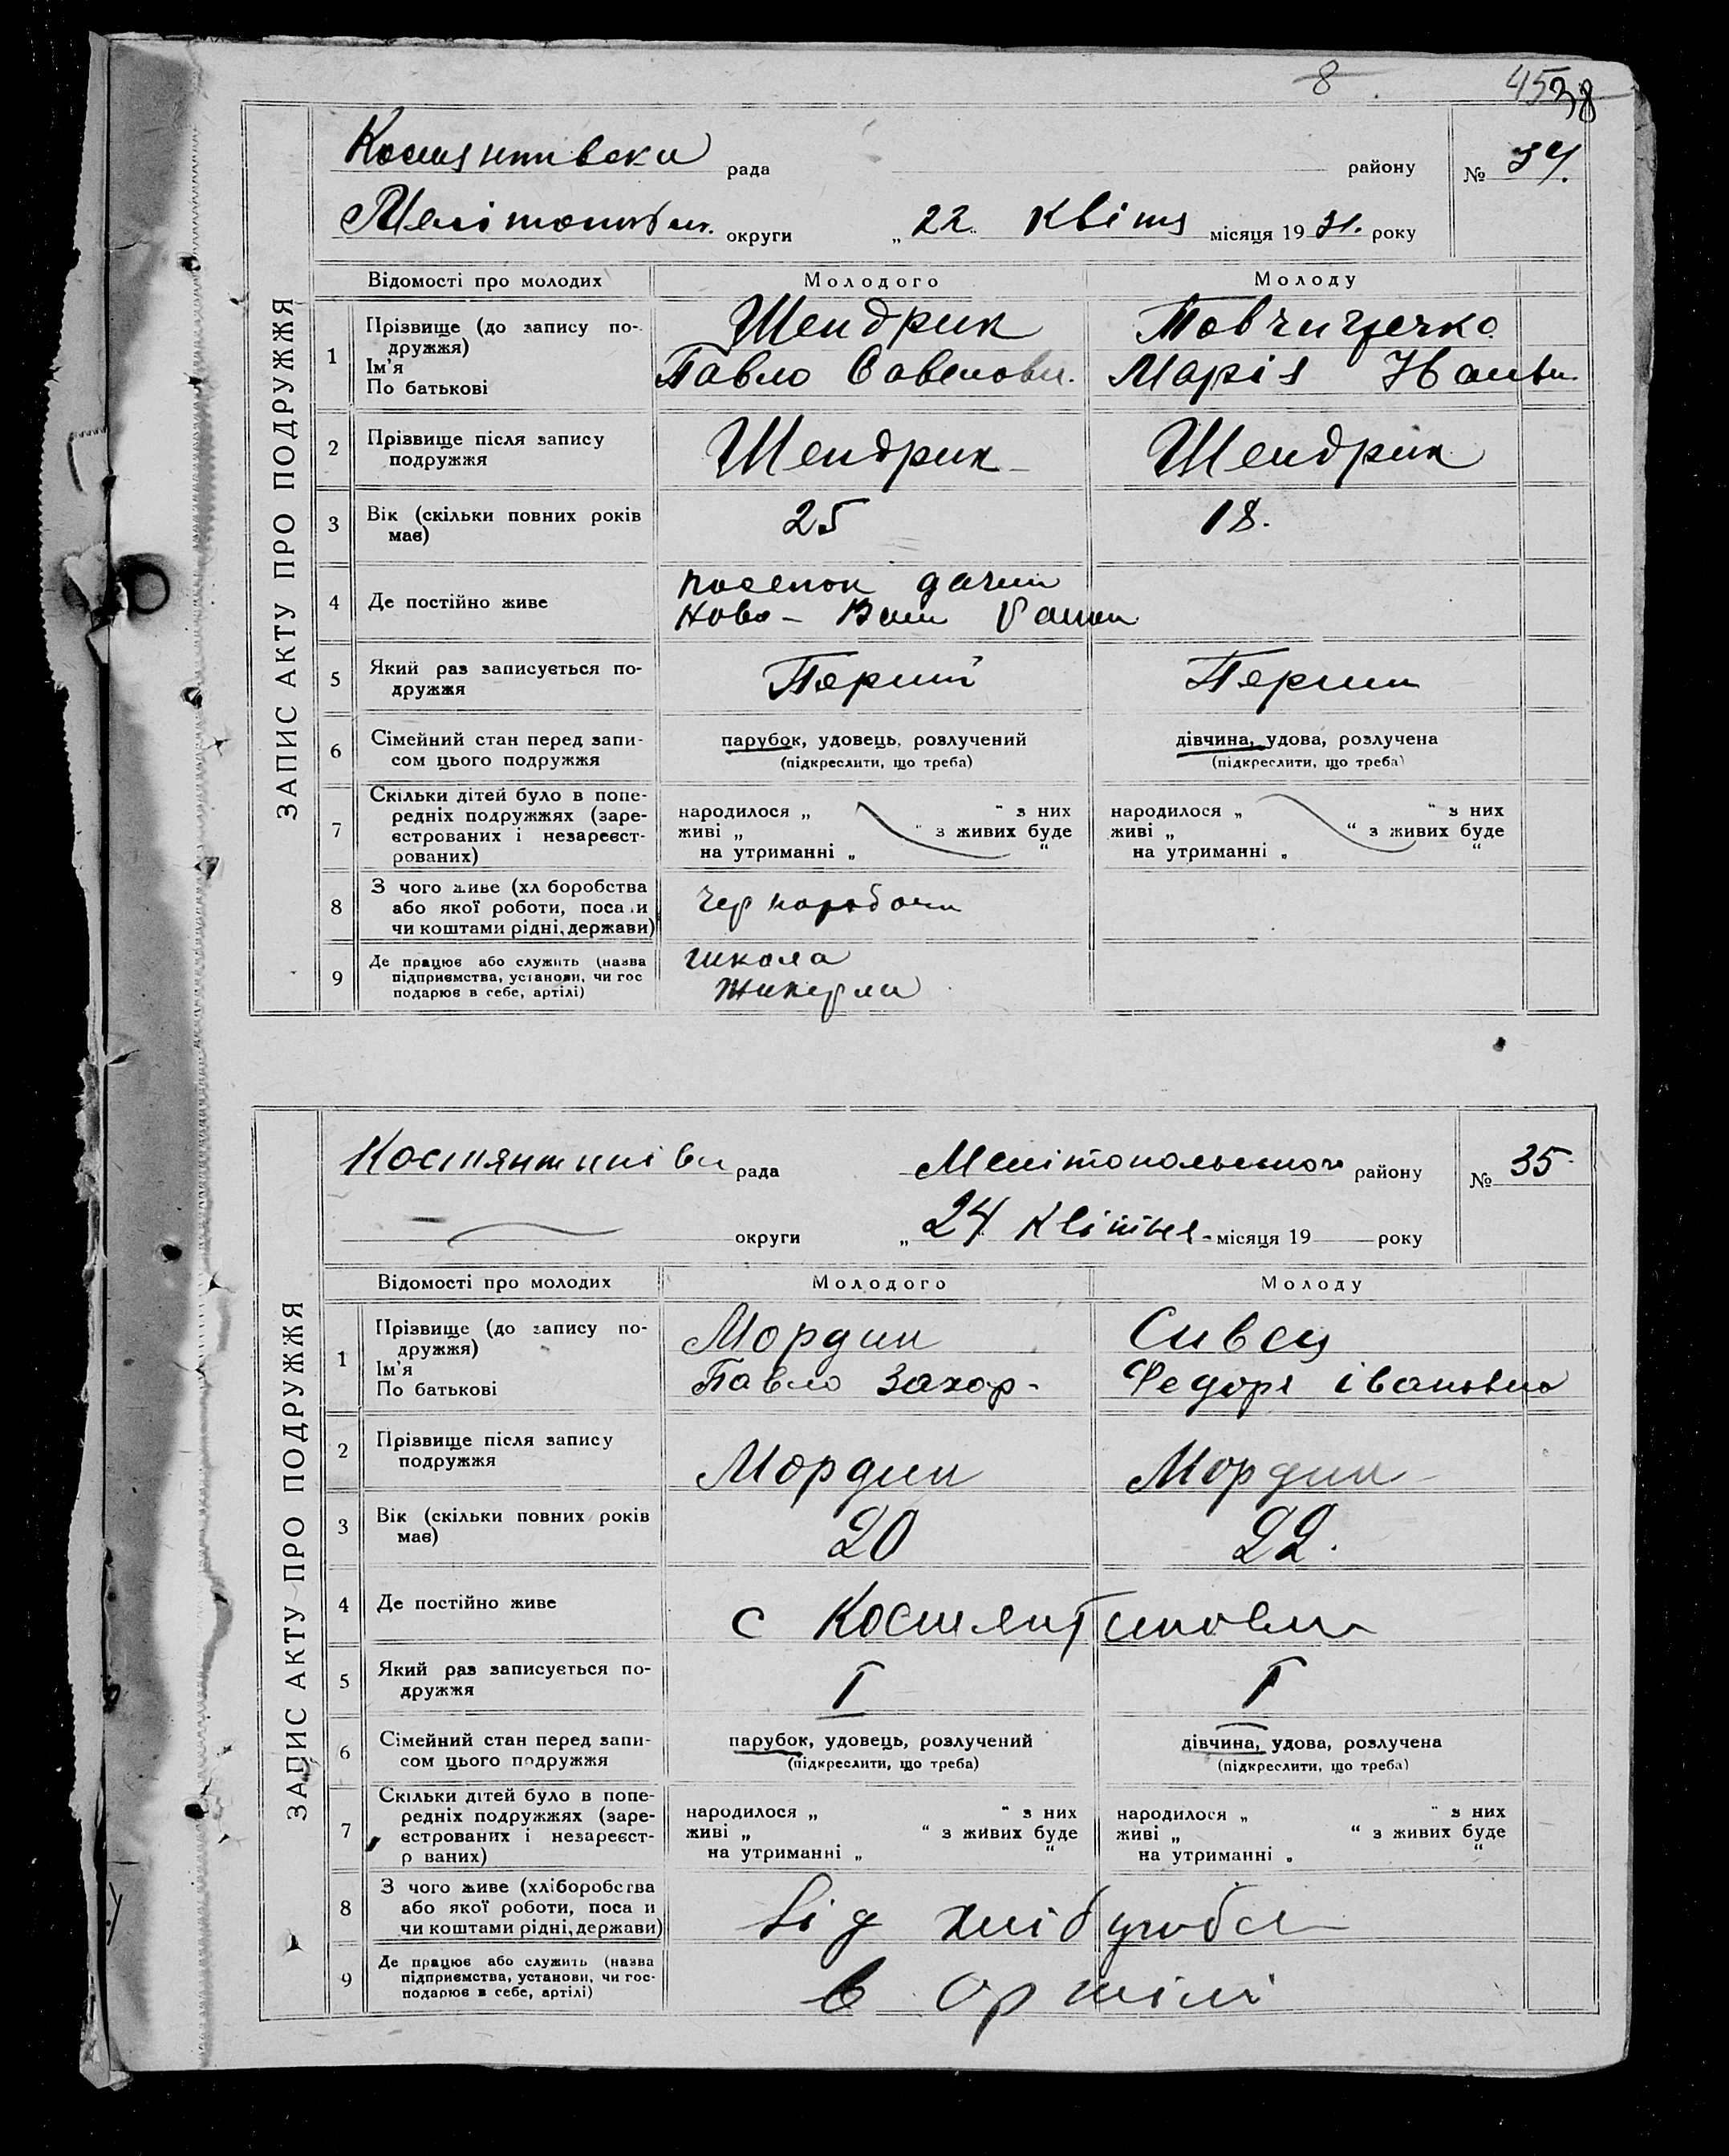 8 4538
рада району № 34.
округи „22" Квітня місяця 1931. року
ЗАПИС АКТУ ПРО ПОДРУЖЖЯ
Відомості про молодих Молодого Молоду
1 Прізвище (до запису по-
дружжя)
Ім'я
По батькові
Шендрик
Павло Савелови.
Марія Ивановн.
2 Прізвище після запису
подружжя
Шендрик Шендрик
3 Вік (скільки повних років
має)
25 18.
4 Де постійно живе
поселок дачи
Ново-
5 Який раз записується по-
дружжя
Перший Перший
6 Сімейний стан перед запи-
сом цього подружжя
парубок, удовець, розлучений дівчина, удова, розлучена
(підкреслити, що треба) (підкреслити, що треба)
7 Скільки дітей було в попе-
редніх подружжях (заре-
єстрованих і незареєст-
рованих)
народилося „ " з них народилося „ " з них
живі „ " з живих буде живі „ " з живих буде
на утриманні „ " на утриманні „ "
8 З чого живе (хл боробства
або якої роботи, поса и
чи коштами рідні, держави)
чернороб
9 Де працює або служить (назва
підприємства, установи, чи гос
подарює в себе, артілі)
школа
рада Мелітопольського району № 35
округи „24 Квітня місяця 19 року
ЗАПИС АКТУ ПРО ПОДРУЖЖЯ
Відомості про молодих Молодого Молоду
1 Прізвище (до запису по-
дружжя)
Ім'я
По батькові
Мордик Сивец
Павло Захар- Федоря івановна
2 Прізвище після запису
подружжя
Мордик Мордик
3 Вік (скільки повних років
має)
20 22.
4 Де постійно живе
с Костянтиновка
5 Який раз записується по-
дружжя
I I
6 Сімейний стан перед запи-
сом цього подружжя
парубок, удовець, розлучений дівчина, удова, розлучена
(підкреслити, що треба) (підкреслити, що треба)
7 Скільки дітей було в попе-
редніх подружжях (заре-
єстрованих і незареєст-
р ваних)
народилося „ " з них народилося „ " з них
живі „ " з живих буде живі „ " з живих буде
на утриманні „ " на утриманні „ "
8 З чого живе (хліборобства
або якої роботи, поса и
чи коштами рідні, держави)
від
9 Де працює або служить (назва
підприємства, установи, чи гос-
подарює в себе, артілі)
в артілі